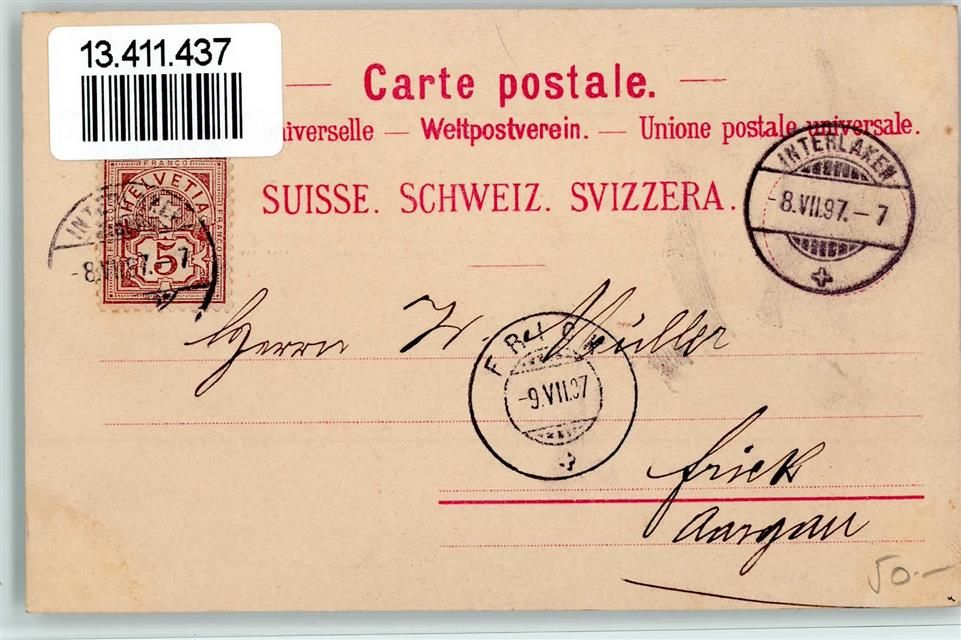 13.411.437
Carte postale.
niverselle — Weltpostverein. — Unione postale universale.
SUISSE. SCHWEIZ. SVIZZERA.
INTERLAKEN
-8.VII.97.-7
FRANCO
HELVETIA
FRANCO
FRANCO
5
INTERLAKEN
-8.VII.97.-7
Herrn W. Müller
FRICK
-9.VII.97
Frick
Aargau
50.-